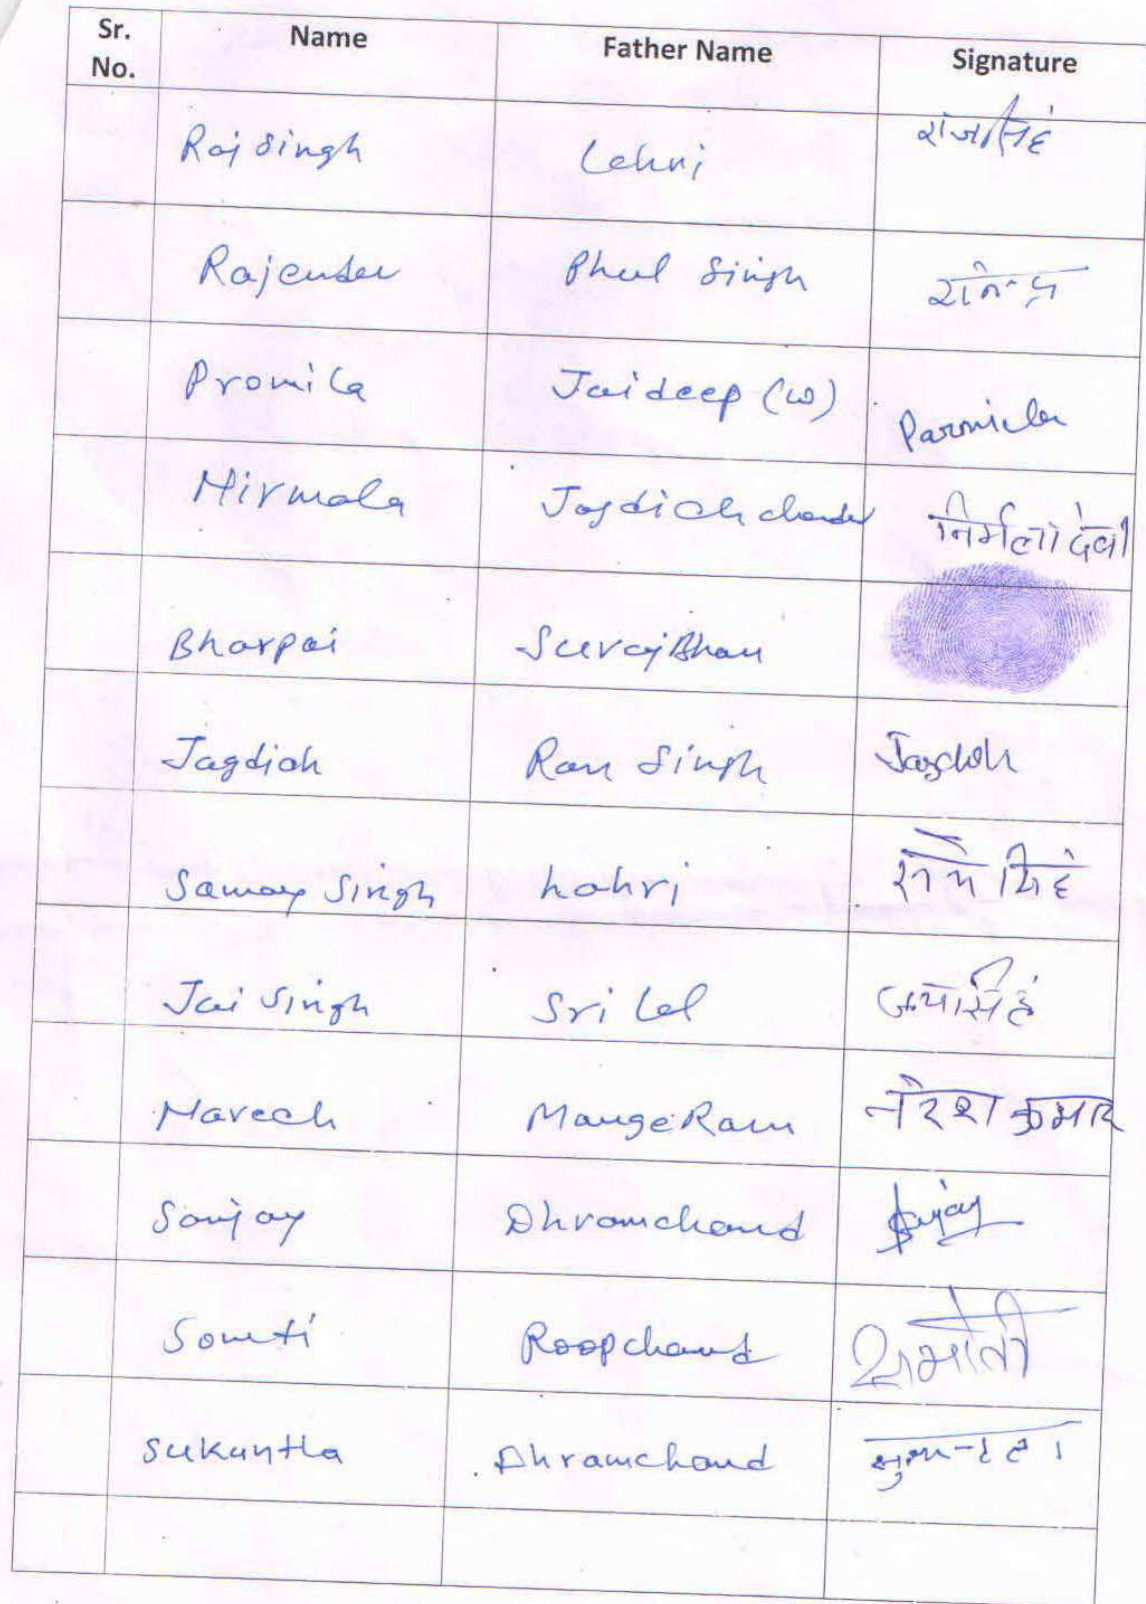 Sr. No. Name Father Name Signature
Raj Singh Lehri
Rajender Phul Singh
Promila Jaideep (W) Parmila
Nirmala Jagdish chander निर्मला देवी
Bharpai SurajBhan
Jagdish Ram Singh Jagdish
Samay Singh Lahri
Jai Singh Sri Lal जयसिहं
Naresh MangeRam नरेश कुमार
Sanjay Dhramchand Sanjay
Somti Roopchand
Sukuntla Dhramchand